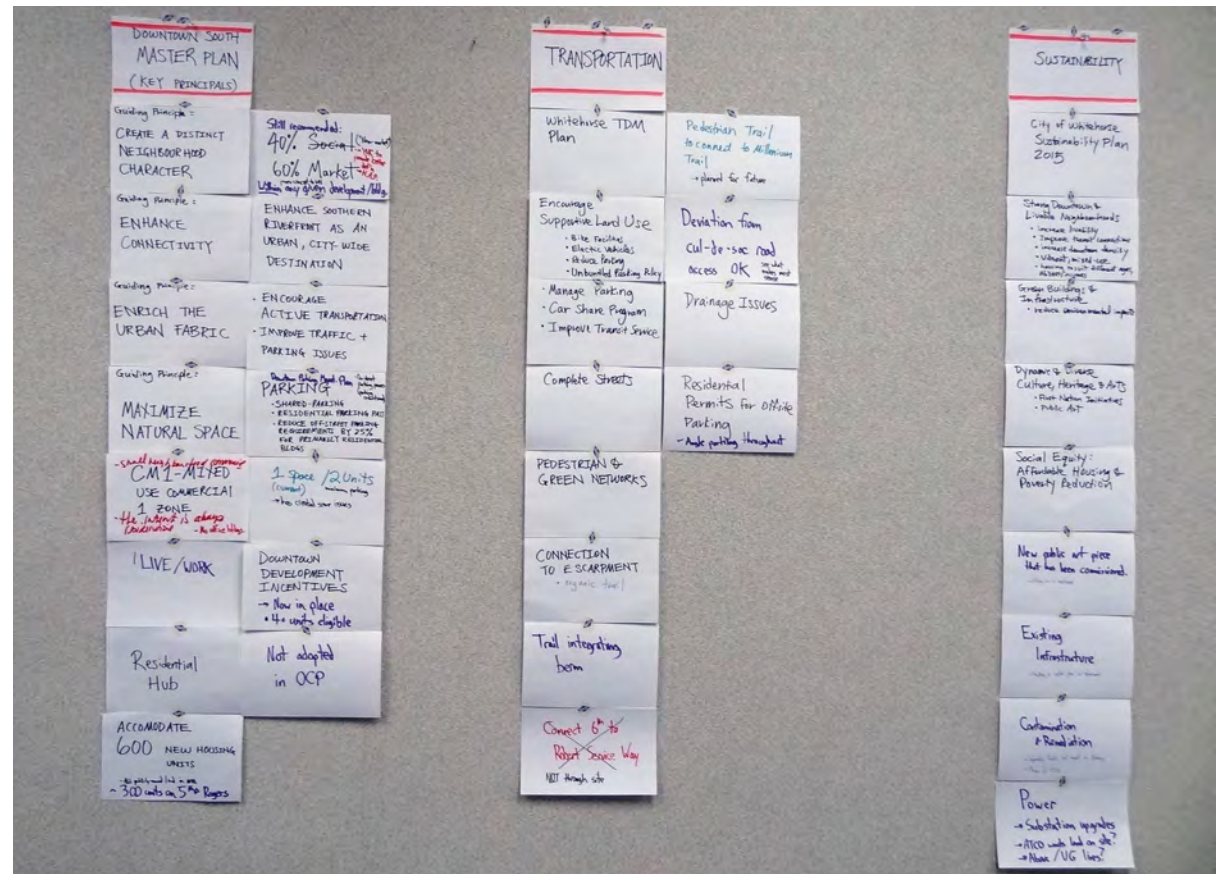 DOWNTOWN SOUTH
MASTER PLAN
(KEY PRINCIPALS)
Guiding Principle:
CREATE A DISTINCT
NEIGHBOURHOOD
CHARACTER
Guiding Principle:
ENHANCE
CONNECTIVITY
Guiding Principle:
ENRICH THE
URBAN FABRIC
Guiding Principle:
MAXIMIZE
NATURAL SPACE
CM1-MIXED
USE COMMERCIAL
1 ZONE
- the intent is always
residential
LIVE/WORK
Residential
Hub
ACCOMODATE
600 NEW HOUSING
UNITS
~ 300 units on 5th & Rogers
Still recommended:
40% Social
60% Market
Within any given development/bldg
ENHANCE SOUTHERN
RIVERFRONT AS AN
URBAN, CITY-WIDE
DESTINATION
• ENCOURAGE
ACTIVE TRANSPORTATION
• IMPROVE TRAFFIC +
PARKING ISSUES
Downtown Parking Mgmt. Plan
PARKING
• SHARED-PARKING
• RESIDENTIAL PARKING PASS
• REDUCE OFF-STREET PARKING
REQUIREMENTS BY 25%
FOR PRIMARILY RESIDENTIAL
BLDGS
1 space /2 Units
(current)
→ has created some issues
DOWNTOWN
DEVELOPMENT
INCENTIVES
→ Now in place
• 4+ units eligible
Not adopted
in OCP
TRANSPORTATION
Whitehorse TDM
Plan
Encourage
Supportive Land Use
• Bike Facilities
• Electric Vehicles
• Reduce Parking
• Unbundled Parking Policy
• Manage Parking
• Car Share Program
• Improve Transit Service
Complete Streets
PEDESTRIAN &
GREEN NETWORKS
CONNECTION
TO ESCARPMENT
• organic trail
Trail integrating
berm
Connect 6th to
Robert Service Way
NOT through site
Pedestrian Trail
to connect to Millenium
Trail
→ planned for future
Deviation from
cul-de-sac road
access OK
Drainage Issues
Residential
Permits for Offsite
Parking
- Angle parking throughout
SUSTAINABILITY
City of Whitehorse
Sustainability Plan
2015
Strong Downtown &
Livable Neighbourhoods
• increase livability
• Improve transit connections
• increase downtown density
• Vibrant, mixed-use
Green Buildings &
Infrastructure
• reduce environmental impacts
Dynamic & Diverse
Culture, Heritage & Arts
• First Nation Initiatives
• Public Art
Social Equity:
Affordable Housing &
Poverty Reduction
New public art piece
that has been commissioned.
Existing
Infrastructure
Contamination
& Remediation
Power
→ Substation upgrades
→ ATCO wants land on site?
→ Above /UG lines?